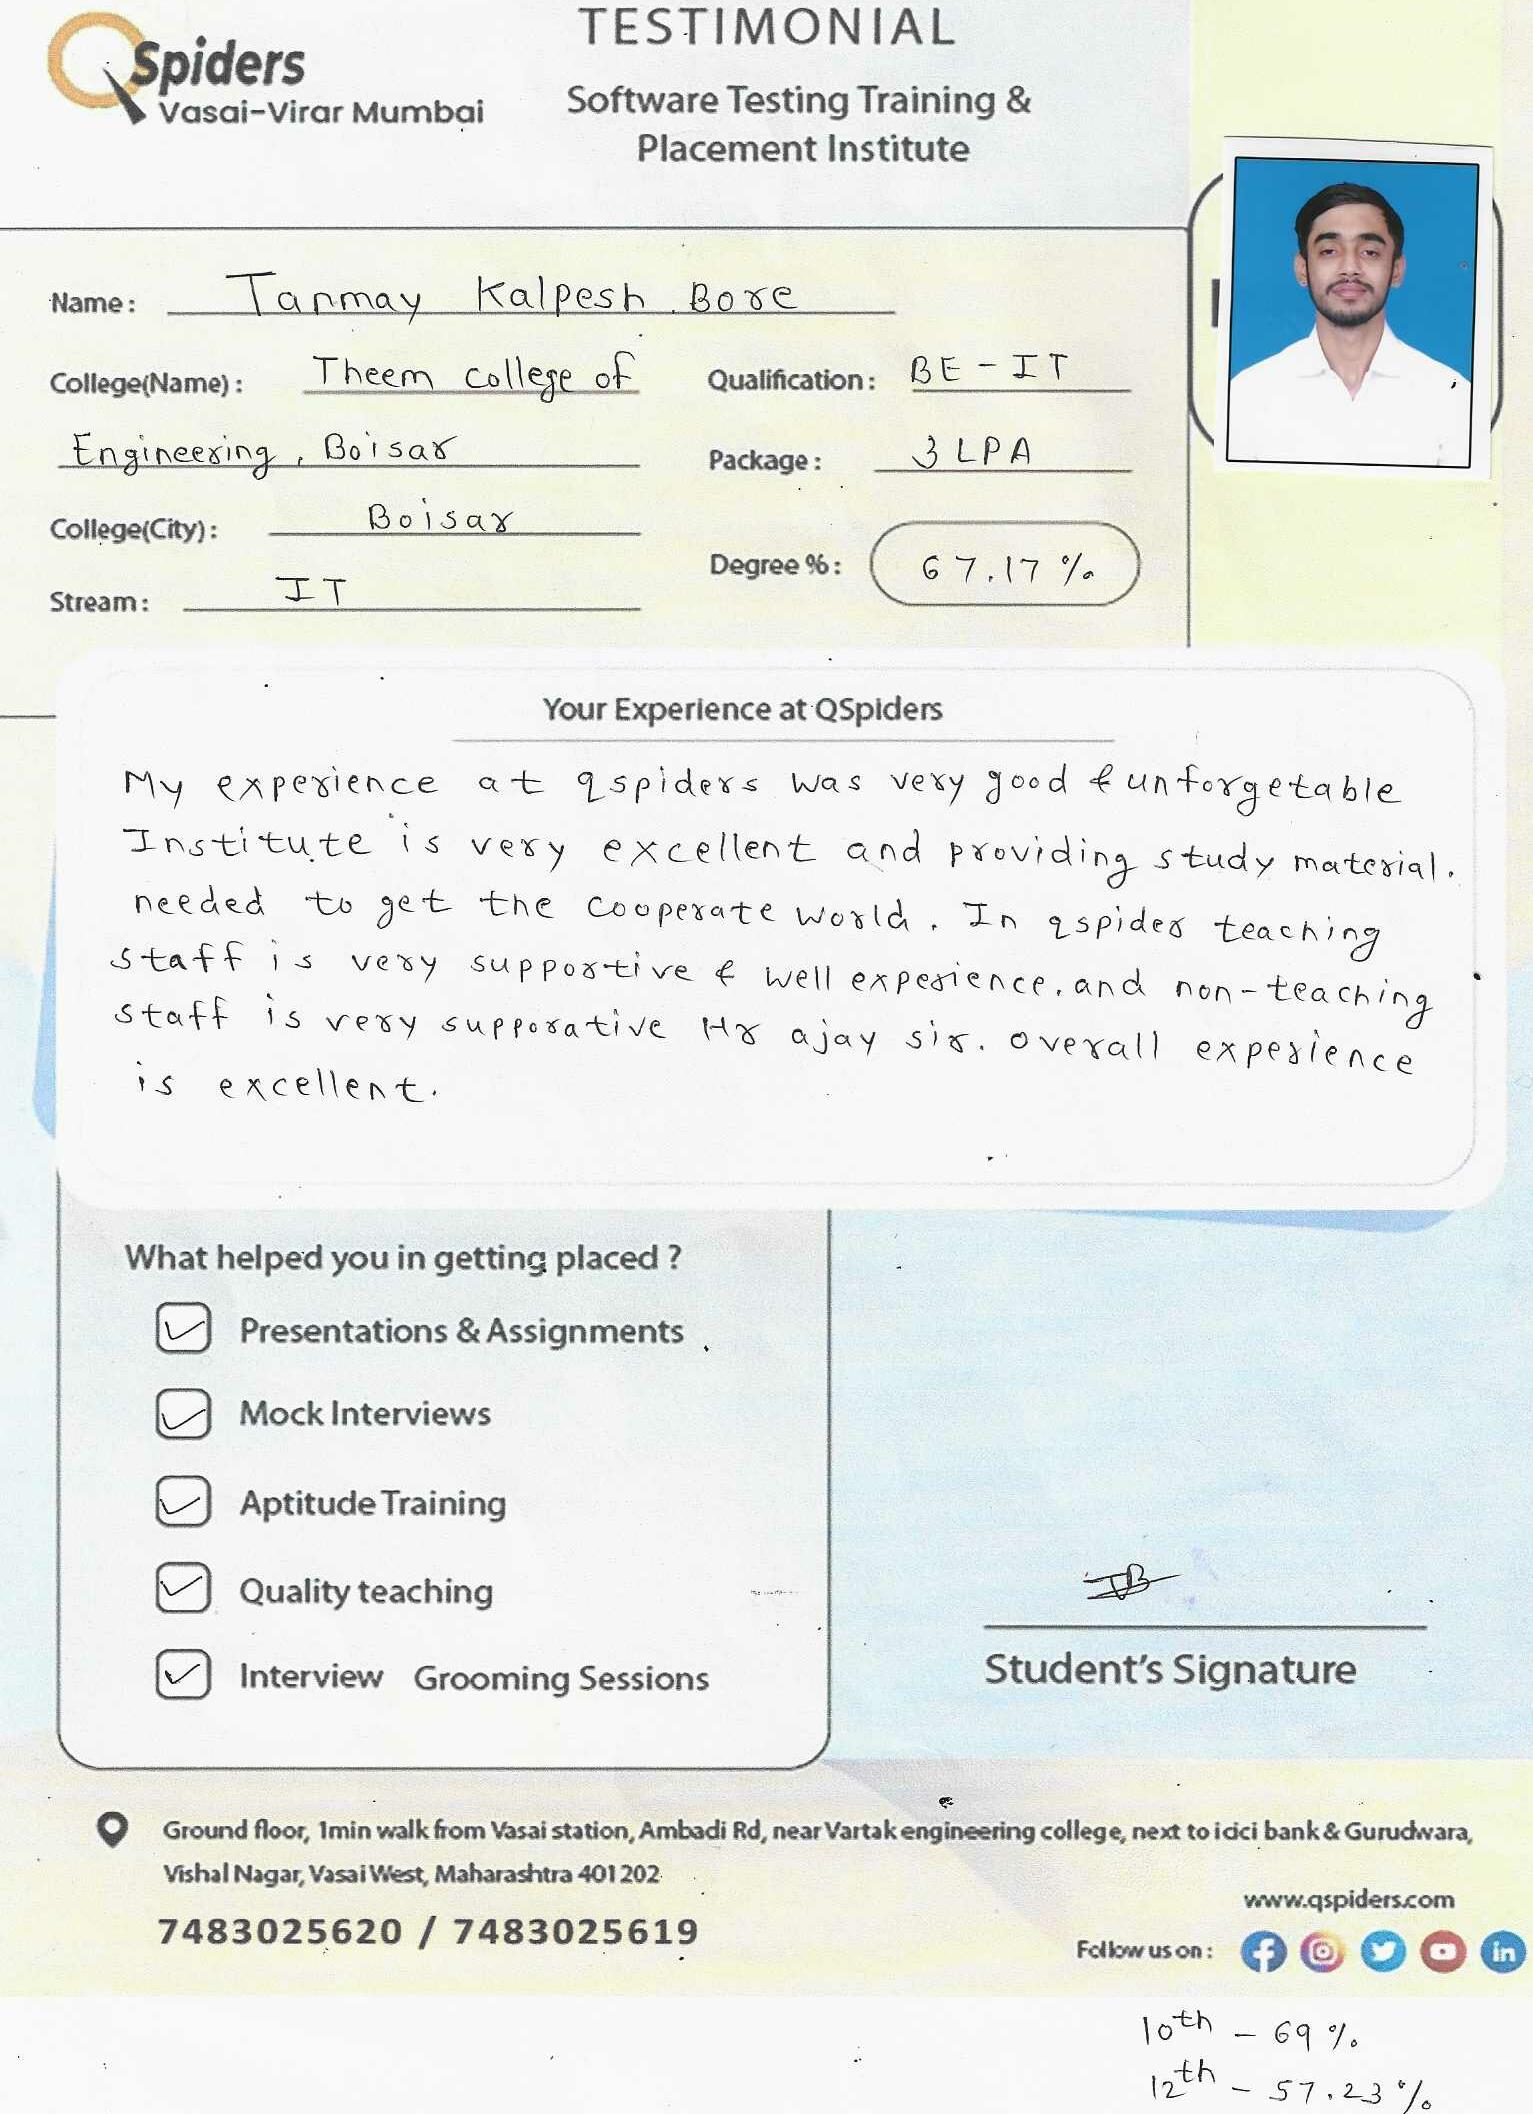 QSpiders
Vasai-Virar Mumbai
TESTIMONIAL
Software Testing Training &
Placement Institute
Name: Tanmay Kalpesh Bore
College(Name): Theem college of
Engineering, Boisar
College(City): Boisar
Stream: IT
Qualification: BE - IT
Package: 3 LPA
Degree %: 67.17 %
Your Experience at QSpiders
My experience at qspiders was very good & unforgetable
Institute is very excellent and providing study material.
needed to get the cooperate world. In qspider teaching
staff is very supportive & well experience. and non-teaching
staff is very supporative Hr ajay sir. overall experience
is excellent.
What helped you in getting placed ?
Presentations & Assignments
Mock Interviews
Aptitude Training
Quality teaching
Interview Grooming Sessions
TB
Student's Signature
Ground floor, 1min walk from Vasai station, Ambadi Rd, near Vartak engineering college, next to icici bank & Gurudwara,
Vishal Nagar, Vasai West, Maharashtra 401202
7483025620 / 7483025619
www.qspiders.com
Follow us on :
10th - 69 %
12th - 57.23 %